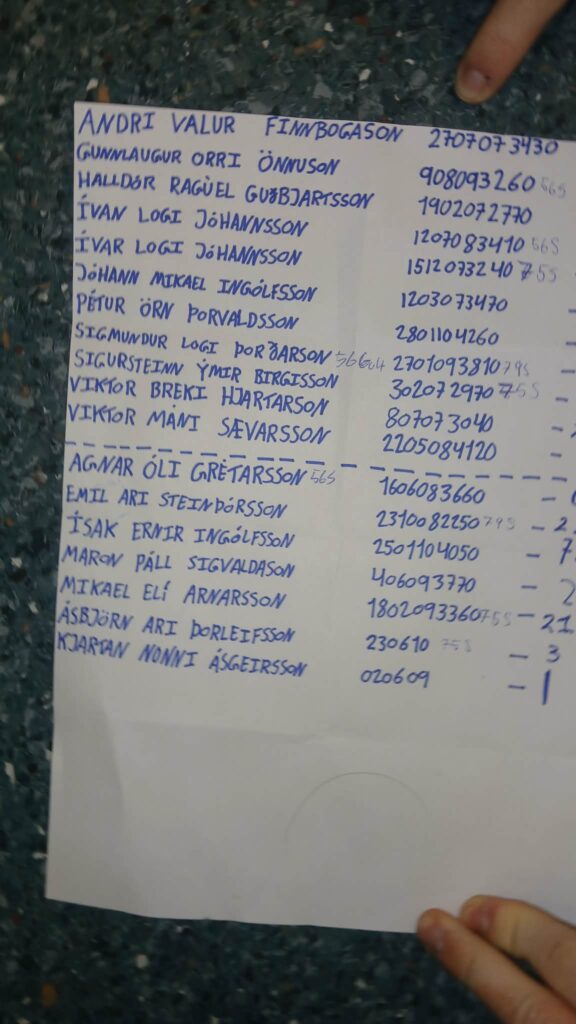 ANDRI VALUR FINNBOGASON 2707073430
GUNNLAUGUR ORRI ÖNNUSON 908093260 56S
HALLDÓR RAGÙEL GUÐBJARTSSON 1902072770
ÍVAN LOGI JÓHANNSSON 1207083410 56S
ÍVAR LOGI JÓHANNSSON 1512073240 75S
JÓHANN MIKAEL INGÓLFSSON 1203073470
PÉTUR ÖRN ÞORVALDSSON 2801104260
SIGMUNDUR LOGI ÞORÐARSON 2701093810 79S
SIGURSTEINN ÝMIR BIRGISSON 302072970 75S
VIKTOR BREKI HJARTARSON 807073040
VIKTOR MÁNI SÆVARSSON 2205084120
AGNAR ÓLI GRÉTARSSON 56S 1606083660
EMIL ARI STEINÞÓRSSON 2310082250 79S - 2
ÍSAK ERNIR INGÓLFSSON 2501104050 - 7
MARON PÁLL SIGVALDASON 406093770 - 2
MIKAEL ELÍ ARNARSSON 1802093360 75S - 21
ÁSBJÖRN ARI ÞORLEIFSSON 230610 75S - 3
KJARTAN NONNI ÁSGEIRSSON 020609 - 1